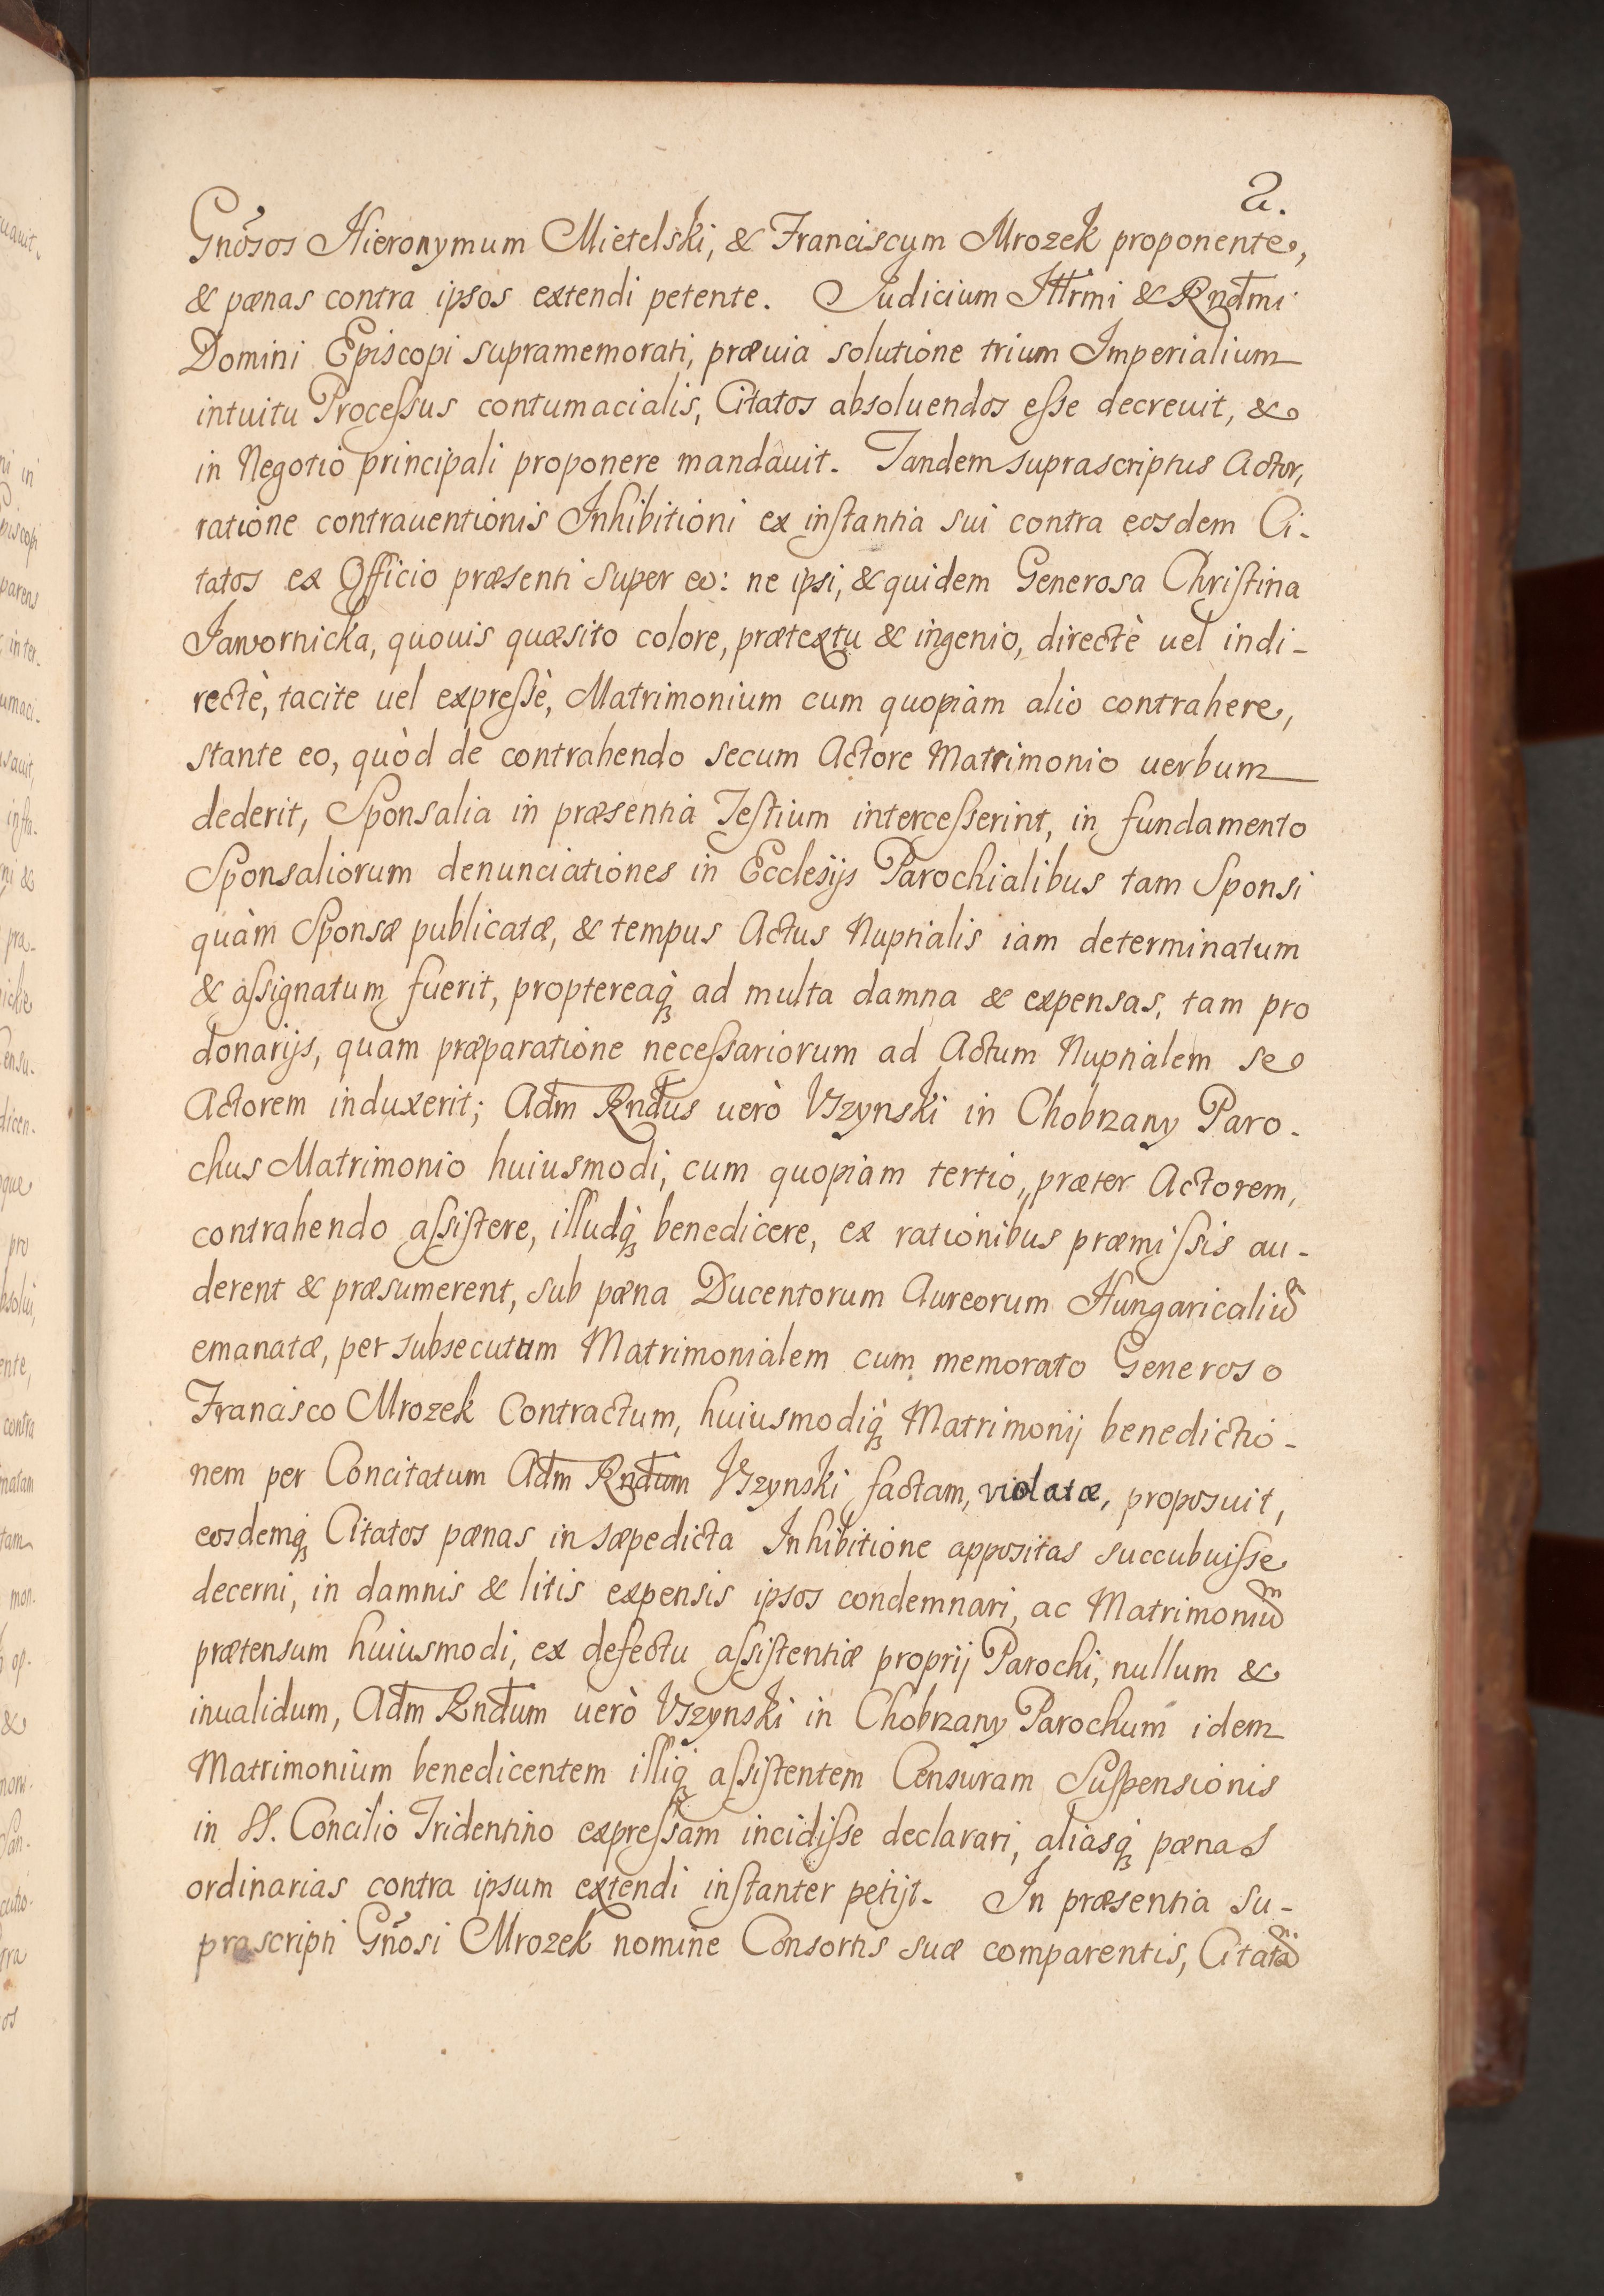 2.
Gnõsos Hieronymum Mietelski, & Franciscum Mrozek proponente,
& pænas contra ipsos extendi petente. Judicium Jllrmi & Rndmi
Domini Episcopi supramemorati, præuia solutione trium Imperialium
intuitu Processus contumacialis, Citatos absoluendos esse decreuit, &
in Negotio principali proponere mandauit. Tandem suprascriptus Actor,
ratione contrauentionis Inhibitioni ex instantia sui contra eosdem Ci-
tatos ex Officio præsenti super eo: ne ipsi, & quidem Generosa Christina
Jawornicka, quouis quæsito colore, prætextu & ingenio, directè uel indi-
rectè, tacite uel expressè, Matrimonium cum quopiam alio contrahere,
stante eo, quòd de contrahendo secum Actore Matrimonio uerbum
dederit, Sponsalia in præsentia Testium intercesserint, in fundamento
Sponsaliorum denunciationes in Ecclesijs Parochialibus tam Sponsi
quàm Sponsæ publicatæ, & tempus Actus Nuptialis iam determinatum
& assignatum fuerit, proptereaq̀ ad multa damna & expensas, tam pro
donarijs, quam præparatione necessariorum ad Actum Nuptialem se
Actorem induxerit; Adm Rndus uerò Uzynski in Chobrzany Paro-
chus Matrimonio huiusmodi, cum quopiam tertio, præter Actorem,
contrahendo assistere, illudq̀ benedicere, ex rationibus præmissis au-
derent & præsumerent, sub pæna Ducentorum Aureorum Hungaricaliũ
emanatæ, per subsecutum Matrimonialem cum memorato Generoso
Francisco Mrozek Contractum, huiusmodiq̀ Matrimonij benedictio-
nem per Concitatum Adm Rndum Uzynski factam, violatæ, proposuit,
eosdemq̀ Citatos pænas in sæpedicta Inhibitione appositas succubuisse
decerni, in damnis & litis expensis ipsos condemnari, ac Matrimoniũ
prætensum huiusmodi, ex defectu assistentiæ proprij Parochi, nullum &
inualidum, Adm Rndum uerò Uzynski in Chobrzany Parochum idem
Matrimonium benedicentem illiq̀ assistentem Censuram Suspensionis
in SS. Concilio Tridentino expressam incidisse declarari, aliasq̀ pænas
ordinarias contra ipsum extendi instanter petijt. In præsentia su-
prascripti Gnõsi Mrozek nomine Consortis suæ comparentis, Citatã